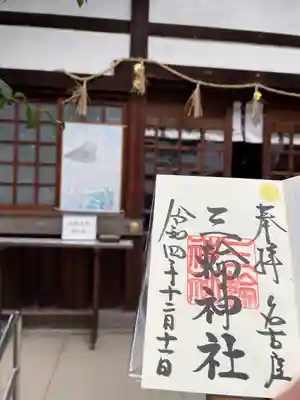 奉拝 名古屋
三輪神社
令和四年十二月十一日